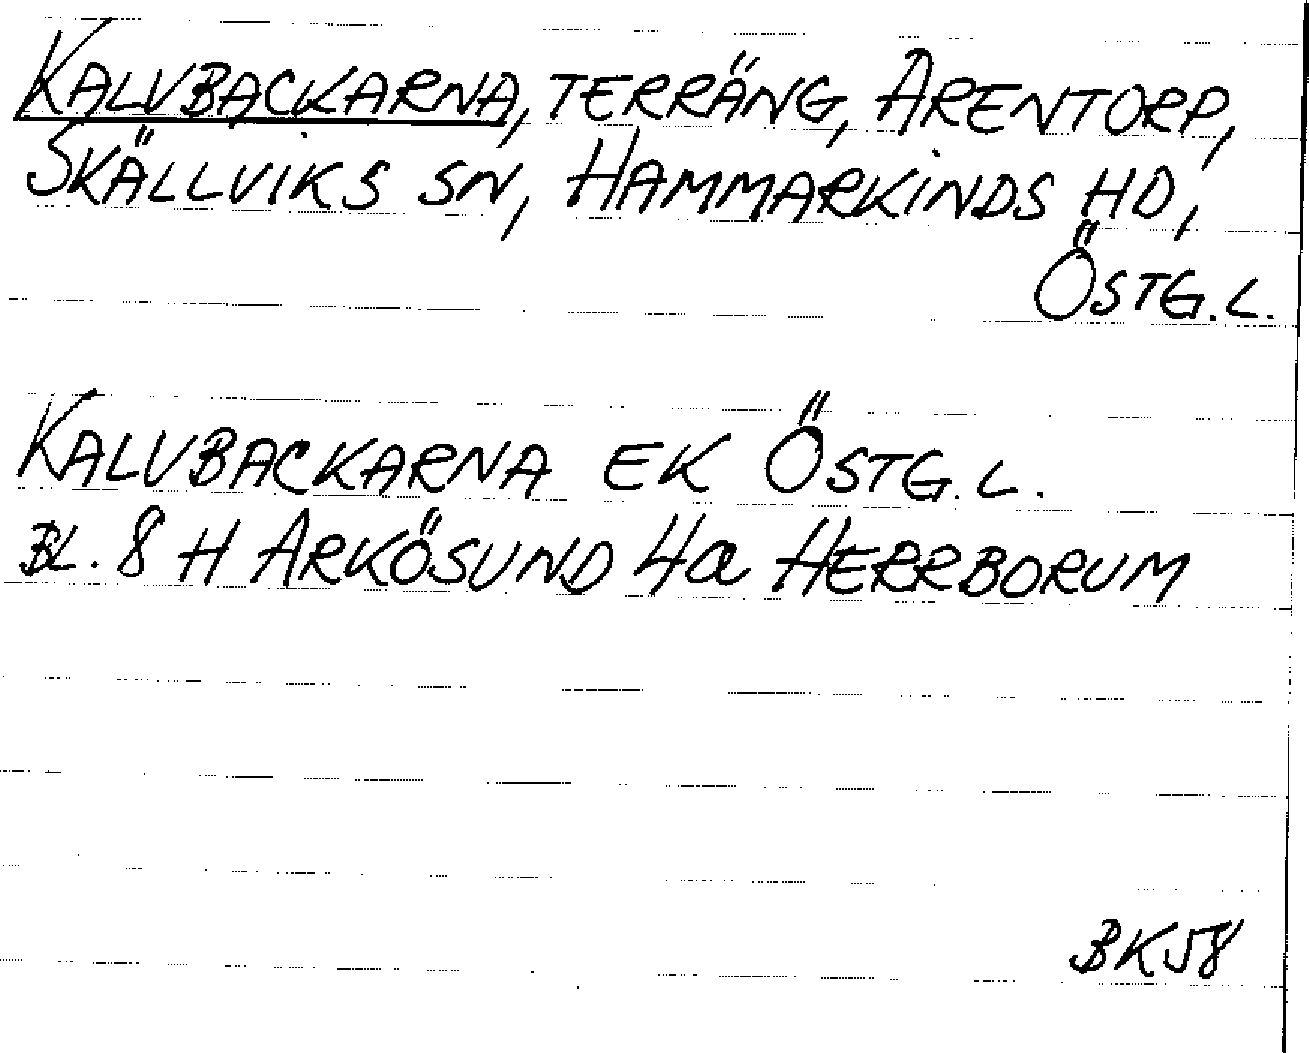 KALVBACKARNA, TERRÄNG, ARENTORP,
SKÄLLVIKS SN, HAMMARKINDS HD,
ÖSTG.L.
KALVBACKARNA EK ÖSTG.L.
BL. 8 H ARKÖSUND 4a HERRBORUM
BK58